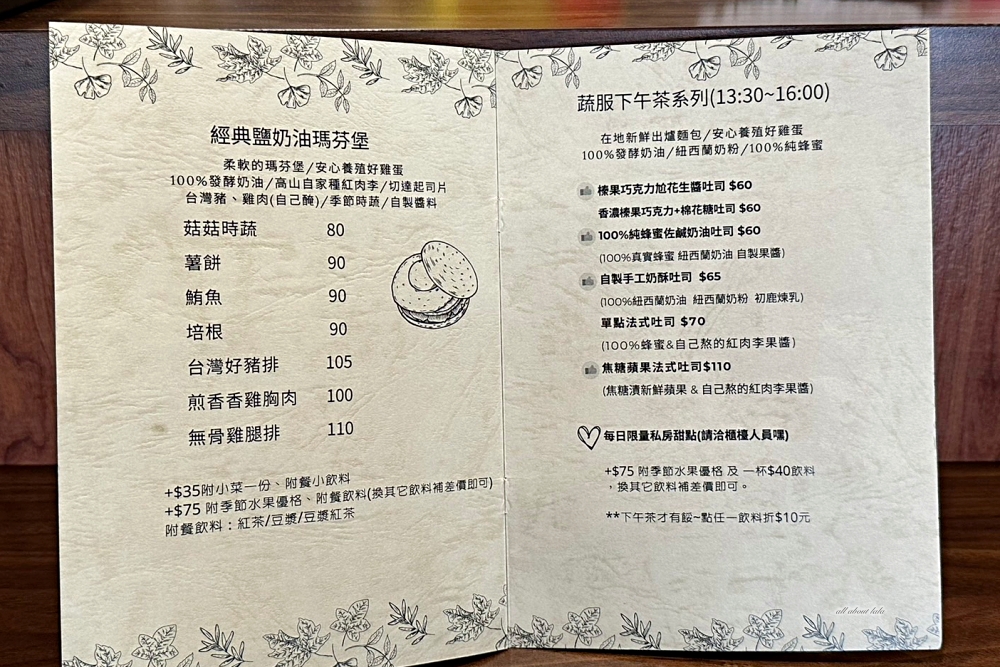 經典鹽奶油瑪芬堡
柔軟的瑪芬堡/安心養殖好雞蛋
100%發酵奶油/高山自家種紅肉李/切達起司片
台灣豬、雞肉(自己醃)/季節時蔬/自製醬料
菇菇時蔬 80
薯餅 90
鮪魚 90
培根 90
台灣好豬排 105
煎香香雞胸肉 100
無骨雞腿排 110
+$35附小菜一份、附餐小飲料
+$75 附季節水果優格、附餐飲料(換其它飲料補差價即可)
附餐飲料：紅茶/豆漿/豆漿紅茶
蔬服下午茶系列(13:30~16:00)
在地新鮮出爐麵包/安心養殖好雞蛋
100%發酵奶油/紐西蘭奶粉/100%純蜂蜜
榛果巧克力尬花生醬吐司 $60
香濃榛果巧克力+棉花糖吐司 $60
100%純蜂蜜佐鹹奶油吐司 $60
(100%真實蜂蜜 紐西蘭奶油 自製果醬)
自製手工奶酥吐司 $65
(100%紐西蘭奶油 紐西蘭奶粉 初鹿煉乳)
單點法式吐司 $70
(100%蜂蜜&自己熬的紅肉李果醬)
焦糖蘋果法式吐司$110
(焦糖漬新鮮蘋果 & 自己熬的紅肉李果醬)
每日限量私房甜點(請洽櫃檯人員嘿)
+$75 附季節水果優格 及 一杯$40飲料
，換其它飲料補差價即可。
**下午茶才有餒~點任一飲料折$10元
all about lulu